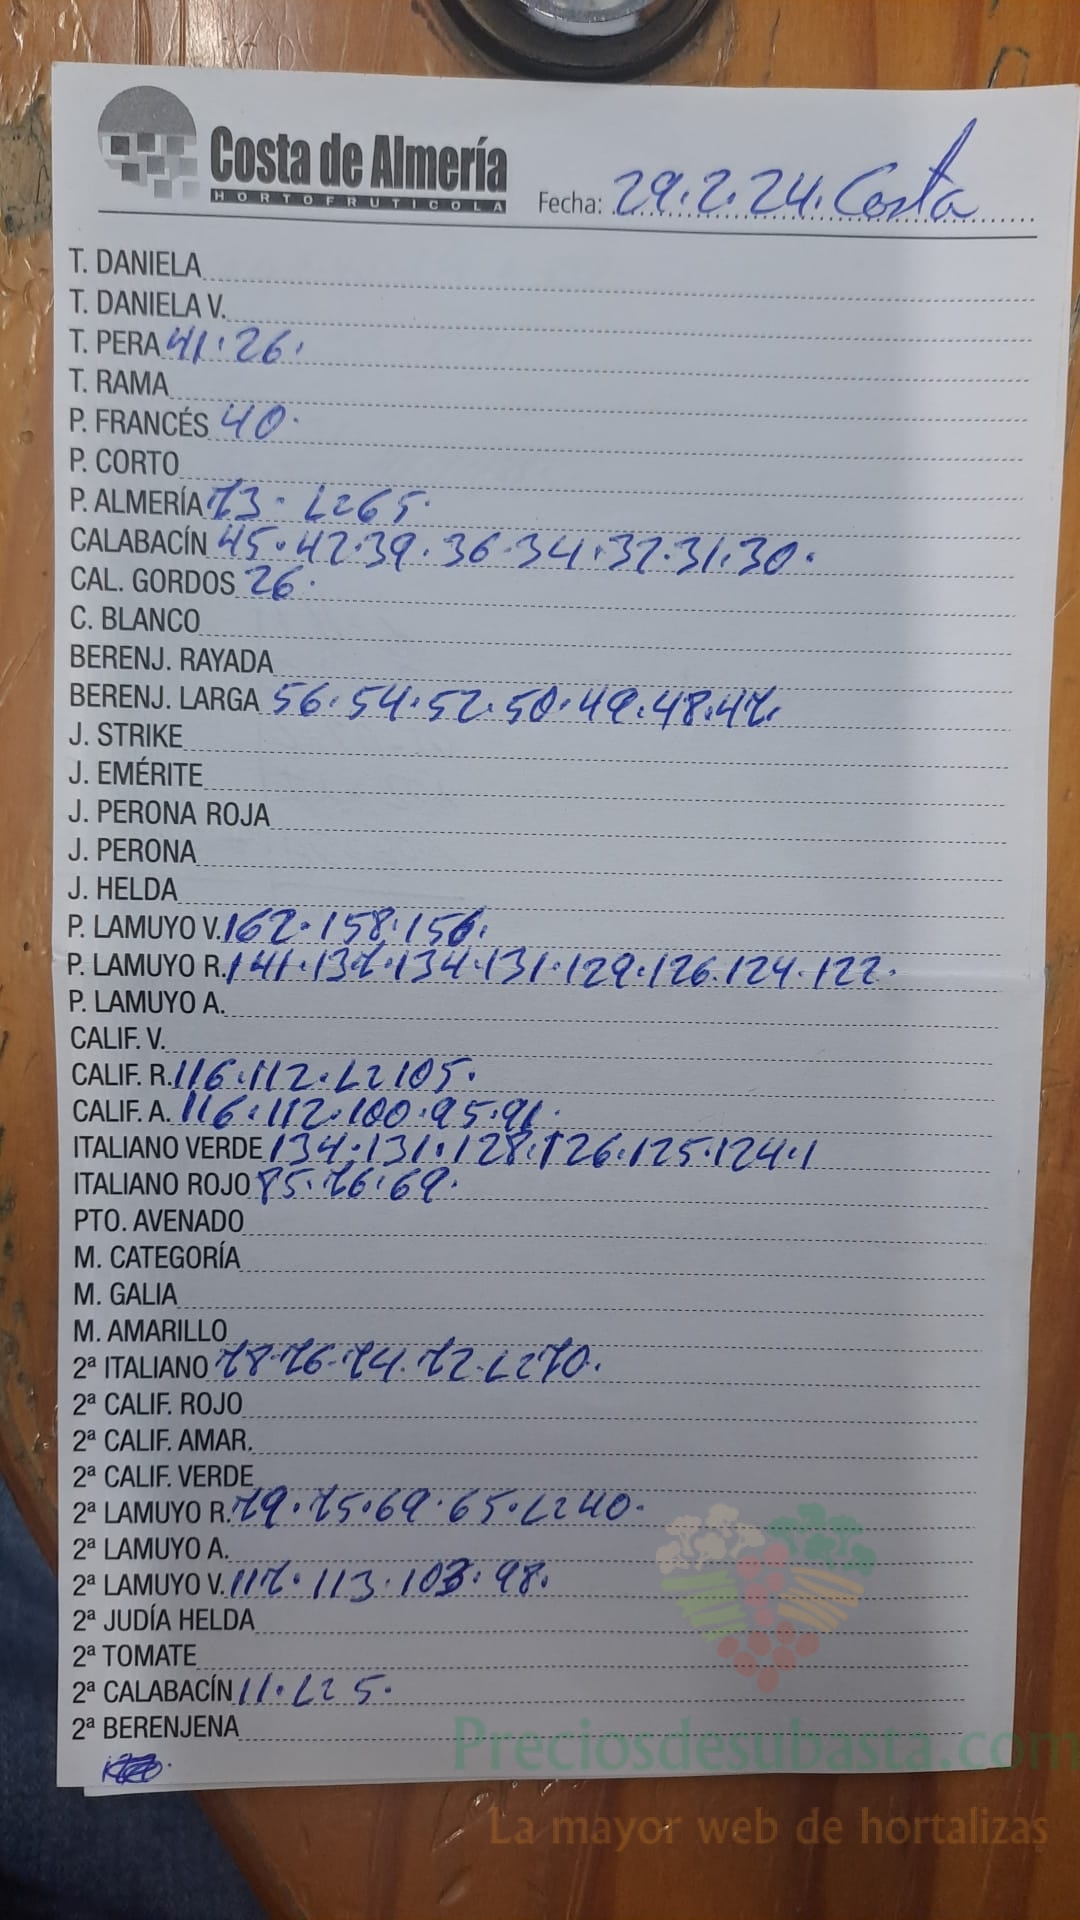 Costa de Almería
HORTOFRUTICOLA
Fecha: 29.2.24. Costa
T. DANIELA
T. DANIELA V.
T. PERA 41.26.
T. RAMA
P. FRANCÉS 40.
P. CORTO
P. ALMERÍA 73. L265.
CALABACÍN 45.42.39.36.34.32.31.30.
CAL. GORDOS 26.
C. BLANCO
BERENJ. RAYADA
BERENJ. LARGA 56.54.52.50.49.48.47.
J. STRIKE
J. EMÉRITE
J. PERONA ROJA
J. PERONA
J. HELDA
P. LAMUYO V. 162.158.156.
P. LAMUYO R. 141.137.134.131.129.126.124.122.
P. LAMUYO A.
CALIF. V.
CALIF. R. 116.112.L2105.
CALIF. A. 116.112.100.95.91.
ITALIANO VERDE 134.131.128.126.125.124.1
ITALIANO ROJO 85.76.69.
PTO. AVENADO
M. CATEGORÍA
M. GALIA
M. AMARILLO
2ª ITALIANO 78.76.74.72.L270.
2ª CALIF. ROJO
2ª CALIF. AMAR.
2ª CALIF. VERDE
2ª LAMUYO R. 79.75.69.65.L240.
2ª LAMUYO A.
2ª LAMUYO V. 117.113.103.98.
2ª JUDÍA HELDA
2ª TOMATE
2ª CALABACÍN 11.L25.
2ª BERENJENA
Preciosdesubasta.com
La mayor web de hortalizas